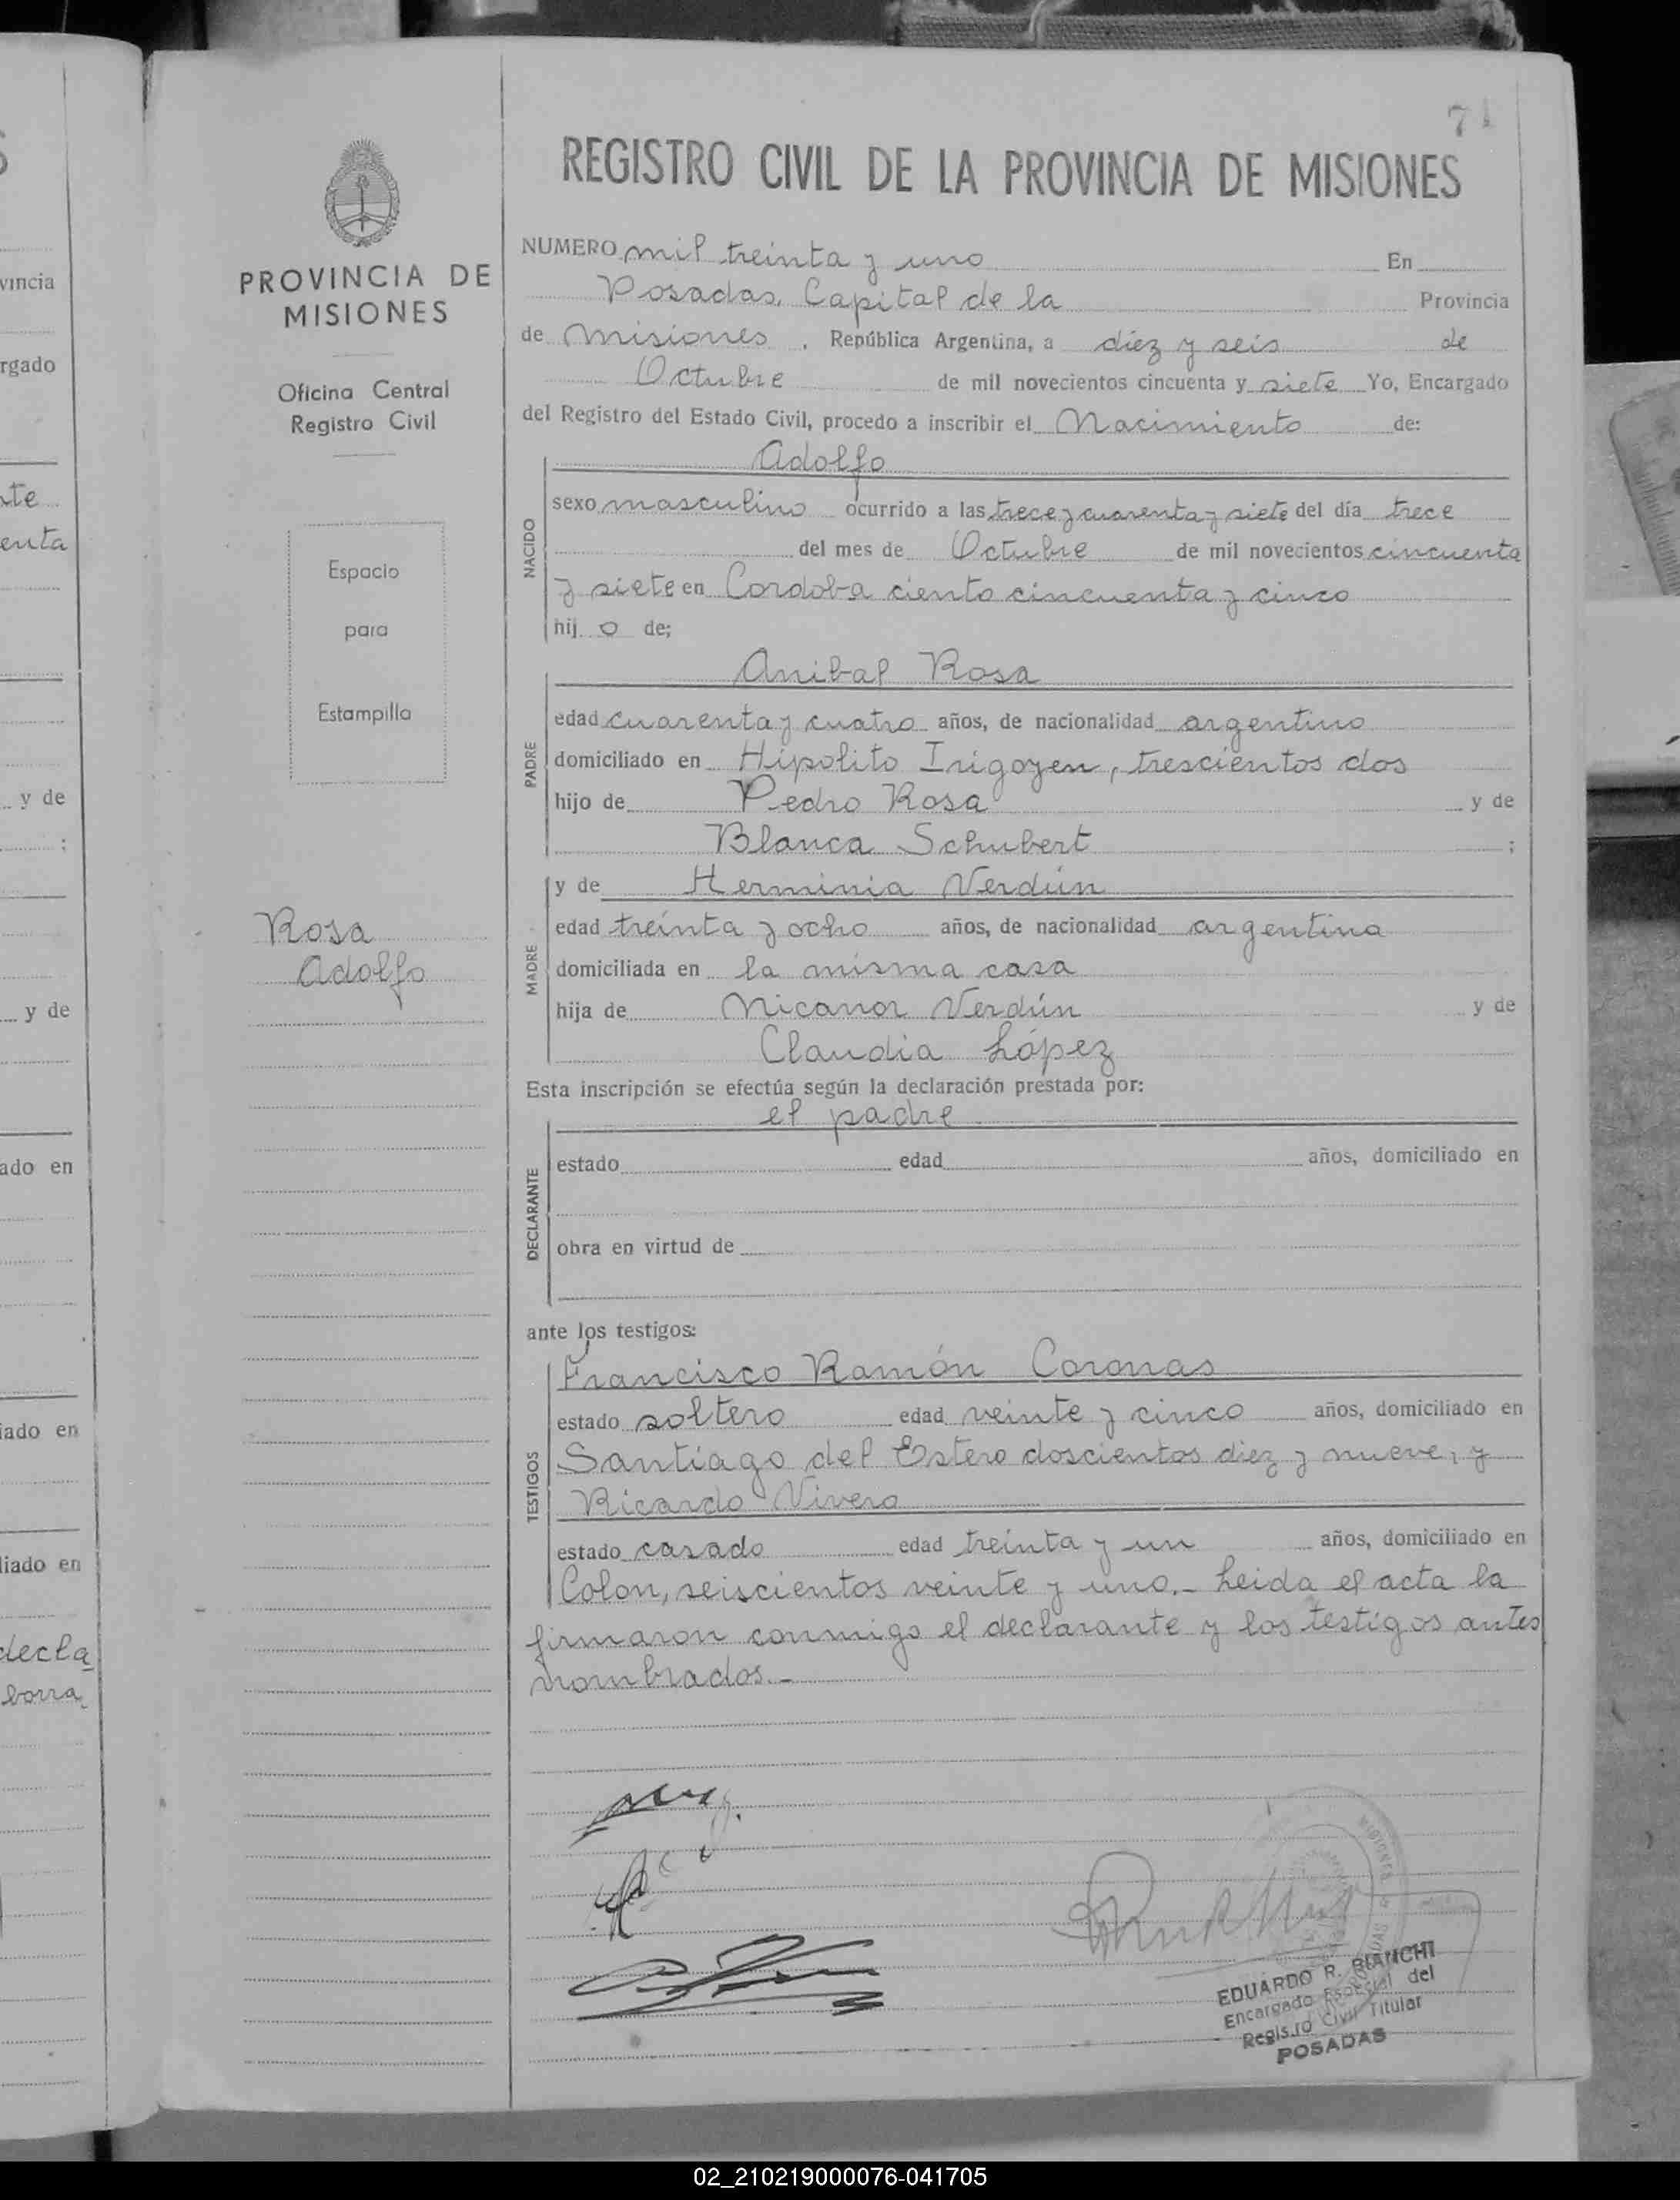 71
REGISTRO CIVIL DE LA PROVINCIA DE MISIONES
PROVINCIA DE
MISIONES
Oficina Central
Registro Civil
Espacio
para
Estampilla
Rosa
Adolfo
NUMERO mil treinta y uno En
Posadas, Capital de la Provincia
de Misiones, República Argentina, a diez y seis de
Octubre de mil novecientos cincuenta y siete Yo, Encargado
del Registro del Estado Civil, procedo a inscribir el Nacimiento de:
NACIDO
Adolfo
sexo masculino ocurrido a las trece y cuarenta y siete del día trece
del mes de Octubre de mil novecientos cincuenta
y siete en Cordoba ciento cincuenta y cinco
hij o de;
PADRE
Anibal Rosa
edad cuarenta y cuatro años, de nacionalidad argentino
domiciliado en Hipolito Irigoyen, trescientos dos
hijo de Pedro Rosa y de
Blanca Schubert ;
MADRE
y de Herminia Verdún
edad treinta y ocho años, de nacionalidad argentina
domiciliada en la misma casa
hija de Nicanor Verdún y de
Claudia López
Esta inscripción se efectúa según la declaración prestada por:
DECLARANTE
el padre
estado edad años, domiciliado en
obra en virtud de
ante los testigos:
TESTIGOS
Francisco Ramón Coronas
estado soltero edad veinte y cinco años, domiciliado en
Santiago del Estero doscientos diez y nueve, y
Ricardo Vivero
estado casado edad treinta y un años, domiciliado en
Colon, seiscientos veinte y uno.- Leida el acta la
firmaron conmigo el declarante y los testigos antes
nombrados.-
EDUARDO R. BIANCHI
Encargado Especial del
Registro Civil Titular
POSADAS
vincia
rgado
te
enta
y de
;
y de
ado en
iado en
liado en
decla
borra
02_210219000076-041705